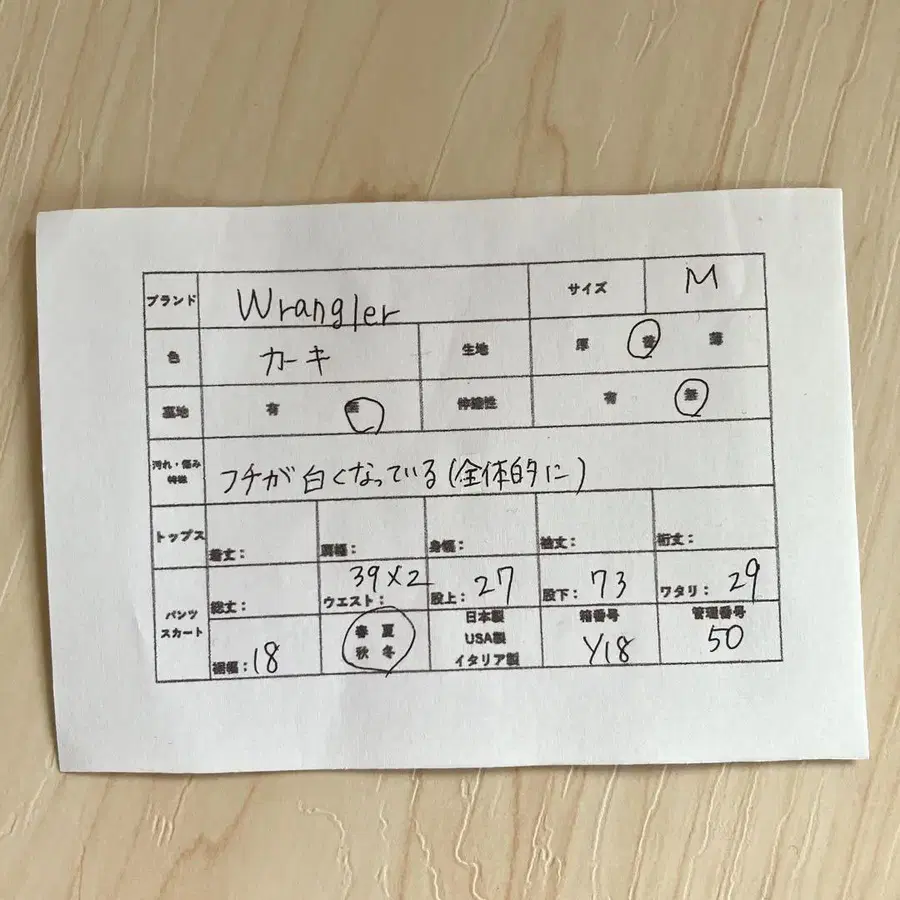 ブランド Wrangler サイズ M
色 カーキ 生地 厚 普 薄
裏地 有 無 伸縮性 有 無
汚れ・傷み
特徴
フチが白くなっている(全体的に)
トップス 着丈: 肩幅: 身幅: 袖丈: 裄丈:
パンツ
スカート
総丈: ウエスト: 39×2 股上: 27 股下: 73 ワタリ: 29
裾幅: 18
春 夏
秋 冬
日本製
USA製
イタリア製
箱番号
Y18
管理番号
50